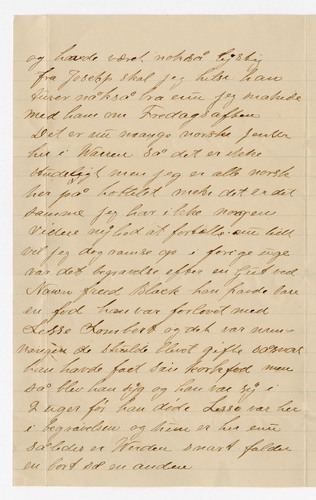 og havde været nokså sysbiy
fra Joseph skal jeg hilse han
turer nåkså bra enu jeg snakede
med ham nu Fredagsaften
Det er nu mange norske jenter
her i Warren så det er ikke
men jeg er alle norsk
her på hottelet mehr det er det
samme jeg har ikke nogen
videre nyhed at fortælle om litt
vil jeg dog ramse op i forige uge
var det begravelse efter en Gut ved
Navn Fred Black han havde bare
en fod han var forlovet med
Lesse Lambert og det var nu en
de skulde blevt gifte
han havde faat sån korkfod men
så blev han syg og han var syg i
2 uger før han døde Lesse var her
i begravelsen og hun er her enu
således er Verden snart falder
en bort så en anden